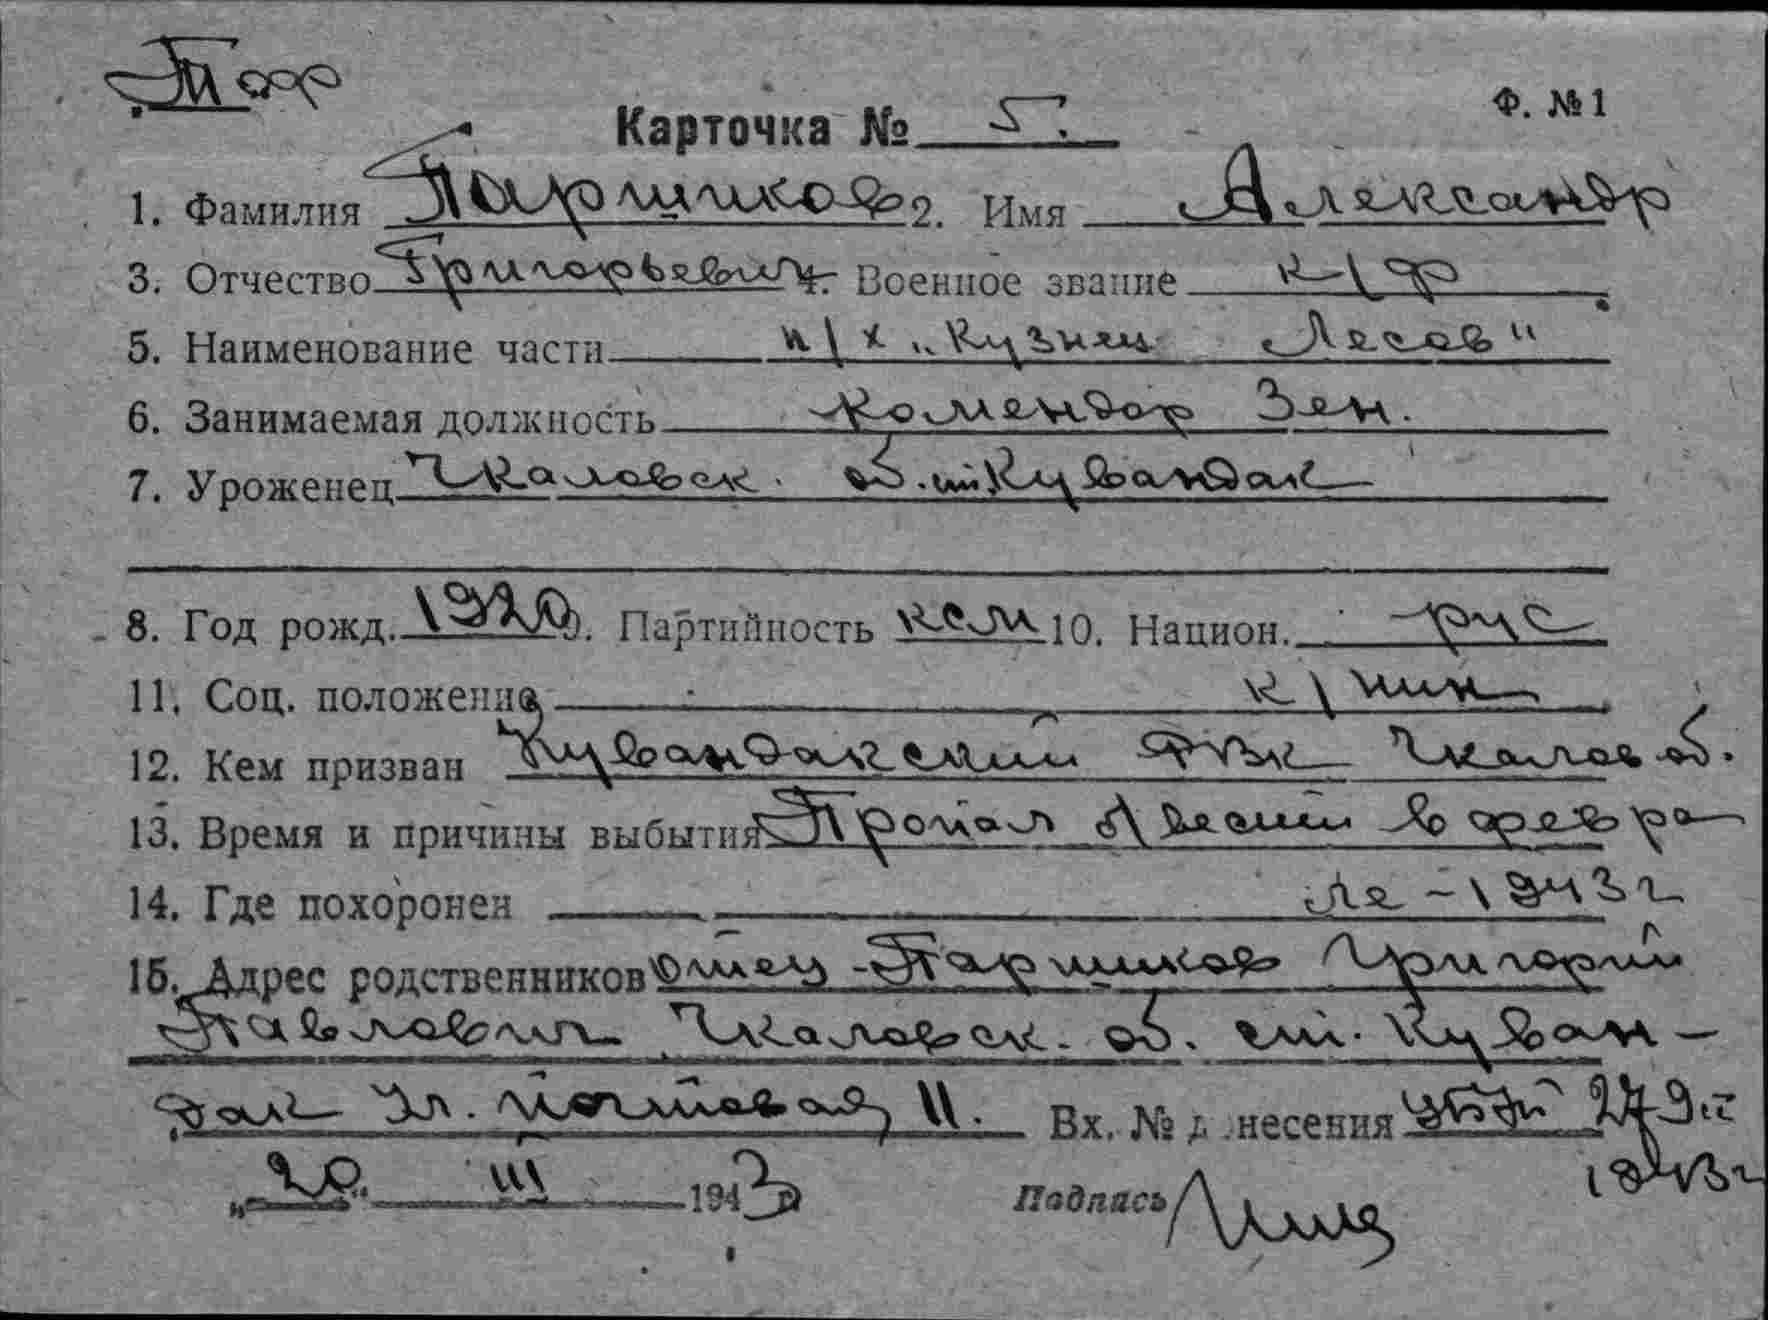 Тоф
Карточка № 5. Ф. № 1
1. Фамилия Паршиков 2. Имя Александр
3. Отчество Григорьевич 4. Военное звание к/ф
5. Наименование части п/х „Кузнец Лесов"
6. Занимаемая должность комендор Зен.
7. Уроженец Чкаловск. об. ст. Кувандак
8. Год рожд. 1920 9. Партийность ксм 10. Национ. рус
11. Соц. положение к/нин
12. Кем призван Кувандакский РВК Чкалов об.
13. Время и причины выбытия Пропал б/вести в февра
14. Где похоронен ле - 1943 г
15. Адрес родственников отец - Паршиков Григорий
Павлович Чкаловск. об. ст. Куван-
дак Ул. Почтовая 11. Вх. № донесения 279
„20" III 1943 г. Подпись 1943 г